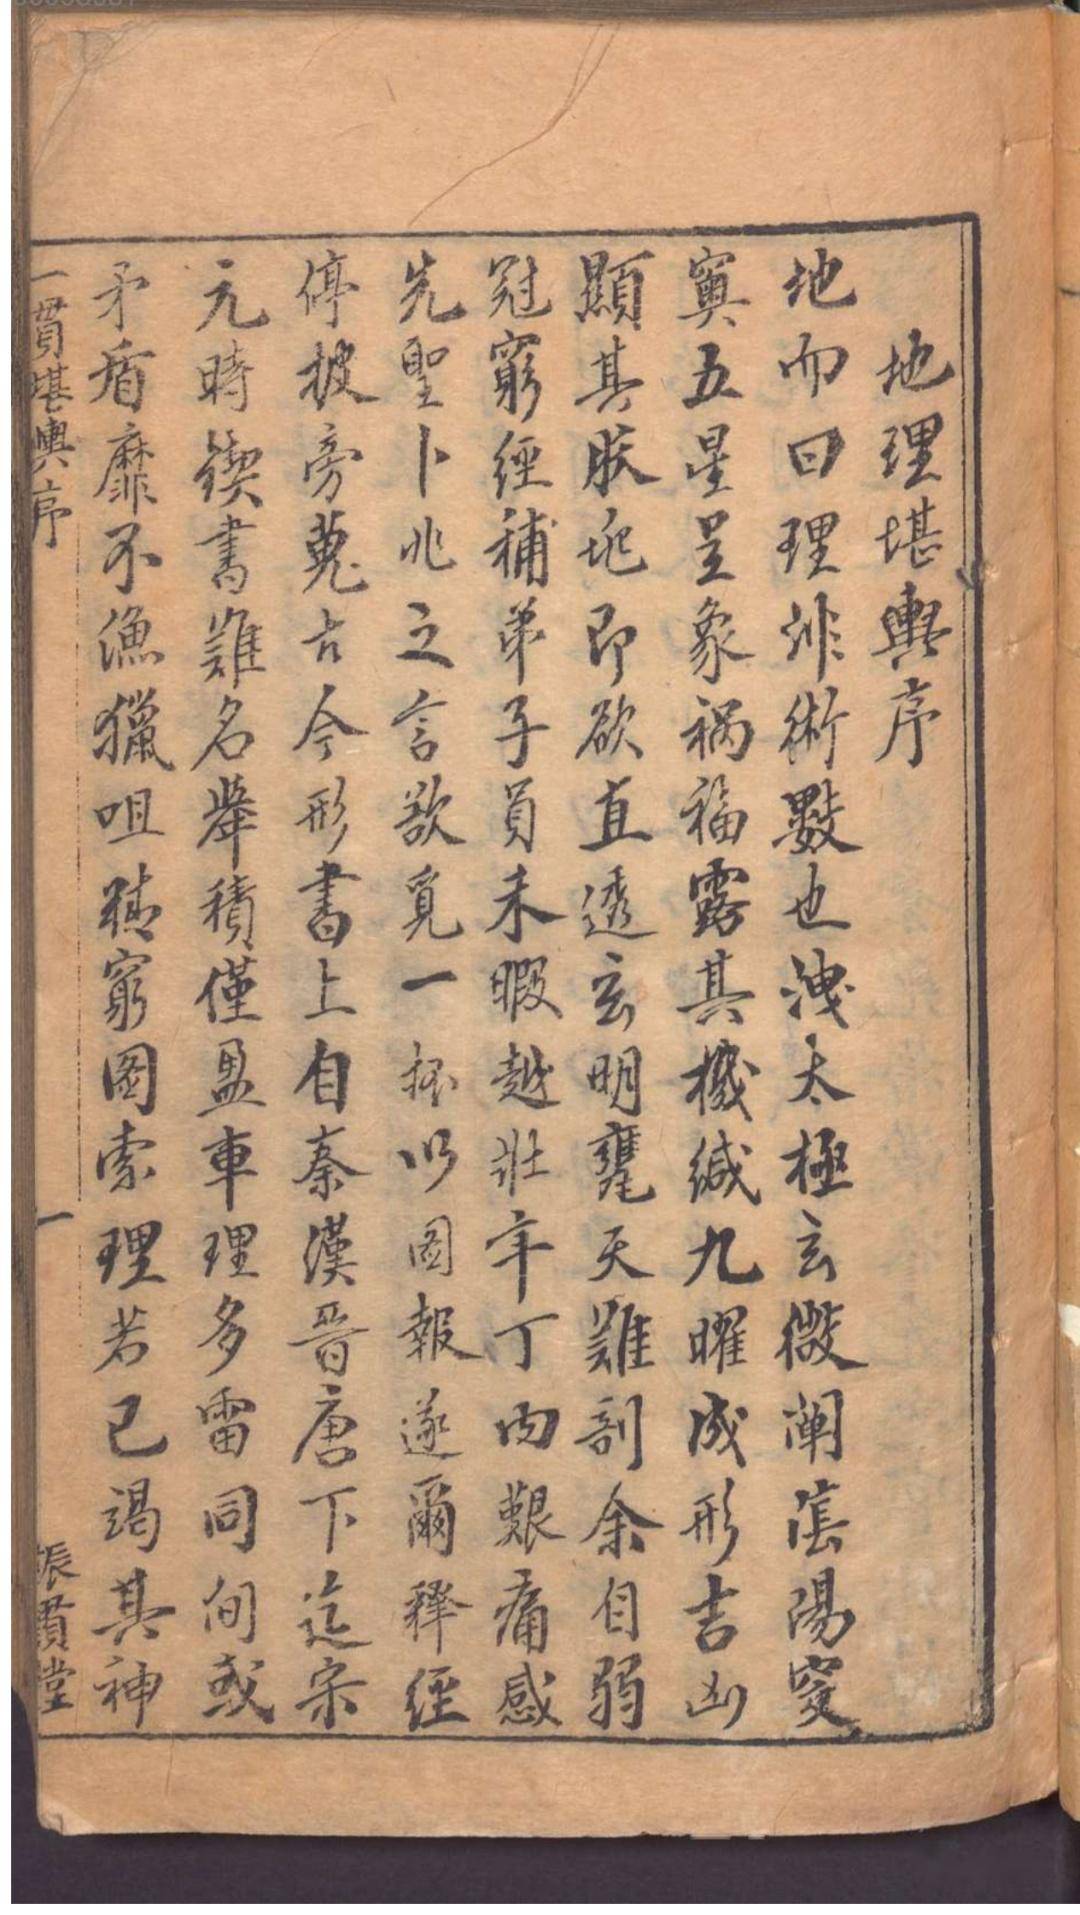 地理堪輿序
地而曰理非術數也洩太極玄微闡陰陽窔
奧五星呈象禍福露其機緘九曜成形吉凶
顯其朕兆即欲直透玄明蘷天難剖余自弱
冠窮經補弟子員未暇越壯年丁內艱痛感
先聖卜兆之言欲覓一抔以圖報遂爾釋經
停披旁蒐古今形書上自秦漢晉唐下迄宋
元時鍥書難名舉積僅盈車理多雷同间或
矛盾靡不漁獵咀穌窮圖索理若已竭其神
一貫堪輿序
一
振貫堂